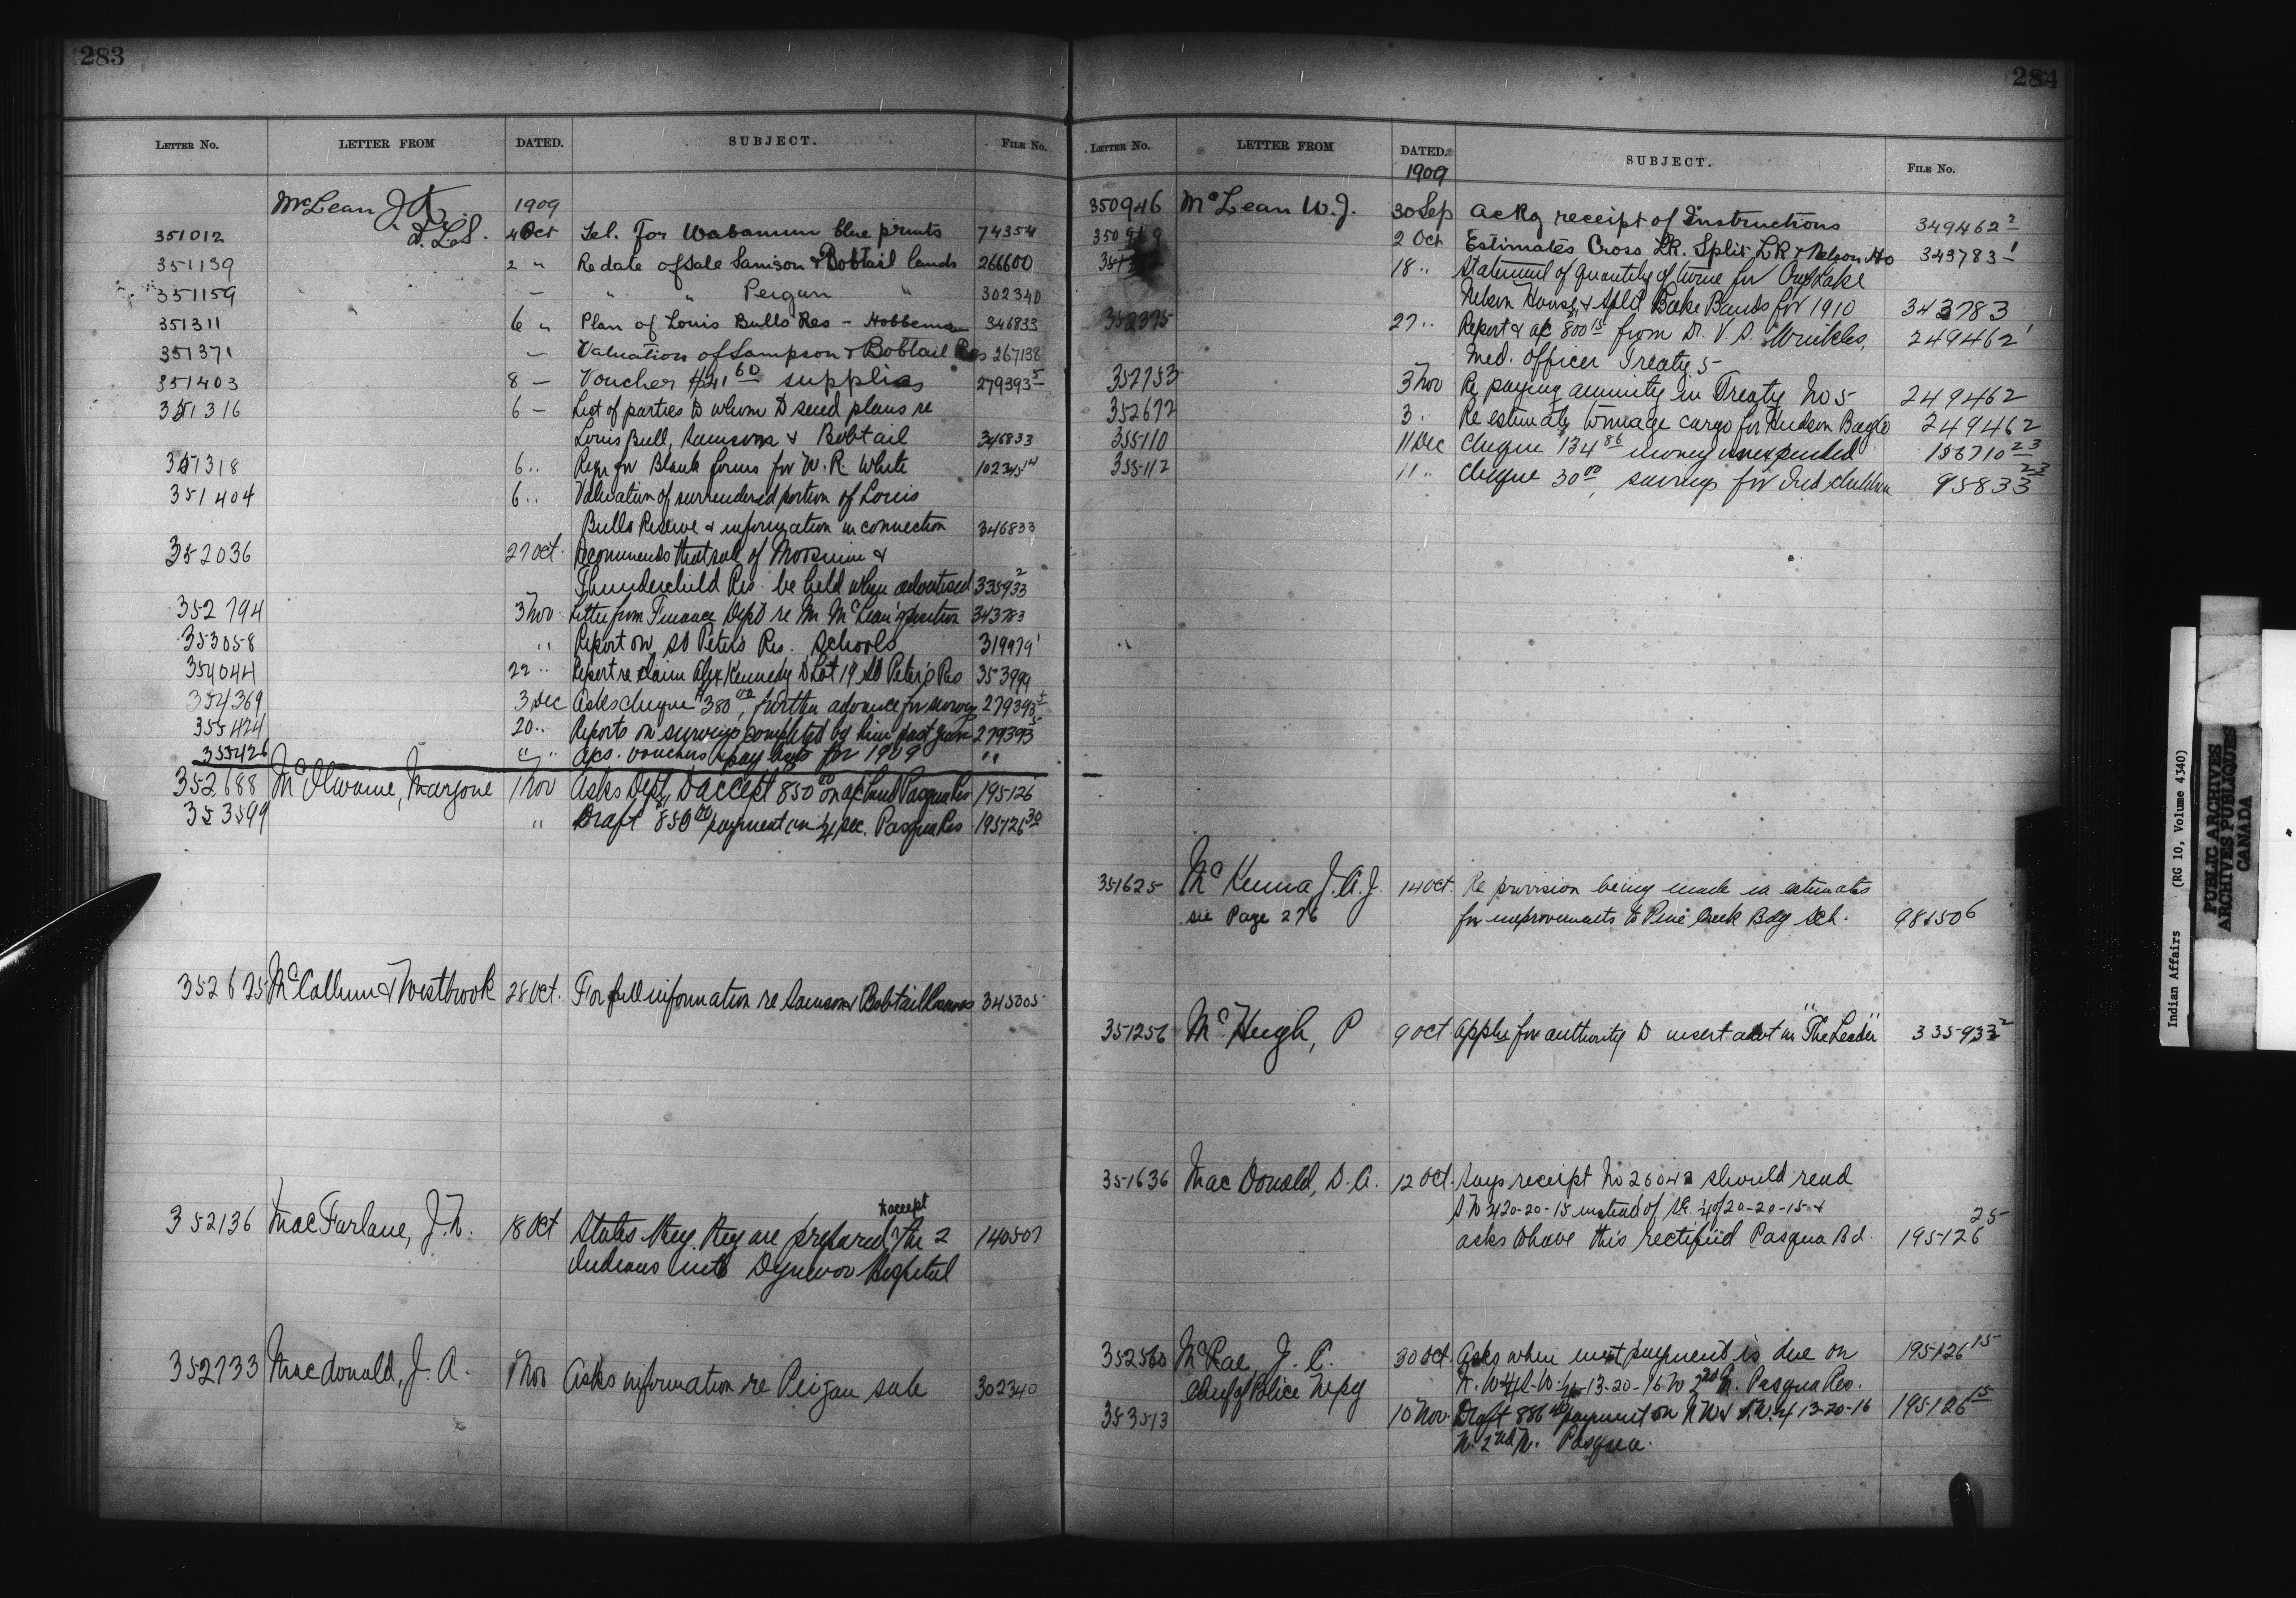 283
LETTER NO. LETTER FROM DATED. SUBJECT. FILE NO.
McLean J.K. 1909
D.L.S.
351012 4 Oct Tel. for Wabamun blue prints 74354
351139 2 " Re date of Sale Samson & Bobtail lands 266600
351159 — " " Peigan " 302340
351311 6 " Plan of Louis Bulls Res - Hobbema 346833
351371 — Valuation of Sampson & Bobtail Res 267138
351403 8 — Voucher $241 60 supplies 279393 5
351316 6 — List of parties to whom to send plans re
Louis Bull, Samsons & Bobtail 346833
351318 6 " Reqn for Blank forms for W. R. White 102345 14
351404 6 " Valuation of surrendered portion of Louis
Bulls Reserve & information in connection 346833
352036 27 Oct. Recommends that sale of Moosmin &
Thunderchild Res. be held when advertised 335933 2
352794 3 Nov. Letter from Finance Dept re Mr McLean's position 343783
353058 " Report on St Peters Res. Schools 319979 1
354044 22 " Report re claim Alex Kennedy to Lot 19 St Peter's Res 353999
354369 3 Dec Asks cheque $380 00, further advance for surveys 279393 5
355424 20 " Reports on surveys completed by him past year 279393 5
355426 " " Acs. vouchers & pay lists for 1909 "
352688 McIlwaine, Marjorie 1 Nov Asks Dept to accept 850 00 on a/c land Pasqua Res 195126
353599 " Draft 850 00 payment on 1/4 sec. Pasqua Res 195126 30
352625 McCallum & Westbrook 28 Oct. For full information re Samson & Bobtail Reserves 345305
352136 MacFarlane, J. N. 18 Oct States they are prepared to accept the 2 140507
Indians into Dynevor Hospital
352733 Macdonald, J. A. 1 Nov Asks information re Peigan sale 302340
284
LETTER NO. LETTER FROM DATED. SUBJECT. FILE NO.
1909
350946 McLean W. J. 30 Sep Ackg receipt of Instructions 349462 2
350969 2 Oct Estimates Cross LR. Split LR & Nelson Ho 343783 1
18 " Statement of quantity of twine for Cross Lake
Nelson House & Split Lake Bands for 1910 343783
352375 27 " Report & a/c 800 15 from Dr. V. S. Wrinkles, 249462 1
Med. Officer Treaty 5
352753 3 Nov Re paying annuity in Treaty No 5 249462
352672 3 " Re estimate tonnage cargo for Hudson Bay Co 249462
355110 11 Dec Cheque 134 86 money unexpended 156710 23
355112 11 " Cheque 30 00, savings for Ind children 95833 23
351625 McKenna J. A. J. 14 Oct. Re provision being made in estimates
see Page 276 for improvements to Pine Creek Bdg Sch. 98150 6
351256 McHugh, P 9 Oct Applies for authority to insert advt in "The Leader" 335933 2
351636 MacDonald, D. A. 12 Oct. Says receipt No 26042 should read
S. W 1/4 20-20-15 instead of S.E. 1/4 of 20-20-15 &
asks to have this rectified Pasqua Bd. 195126 25
352560 McRae J. C. 30 Oct. Asks when next payment is due on 195126 15
Chief of Police Wpg N. W. & S. W. 1/4 13-20-16 W 2nd M. Pasqua Res.
353513 10 Nov. Draft 886 40 payment on N W & S.W. 1/4 13-20-16 195126 15
W. 2nd M. Pasqua.
Indian Affairs (RG 10, Volume 4340)
PUBLIC ARCHIVES
ARCHIVES PUBLIQUES
CANADA